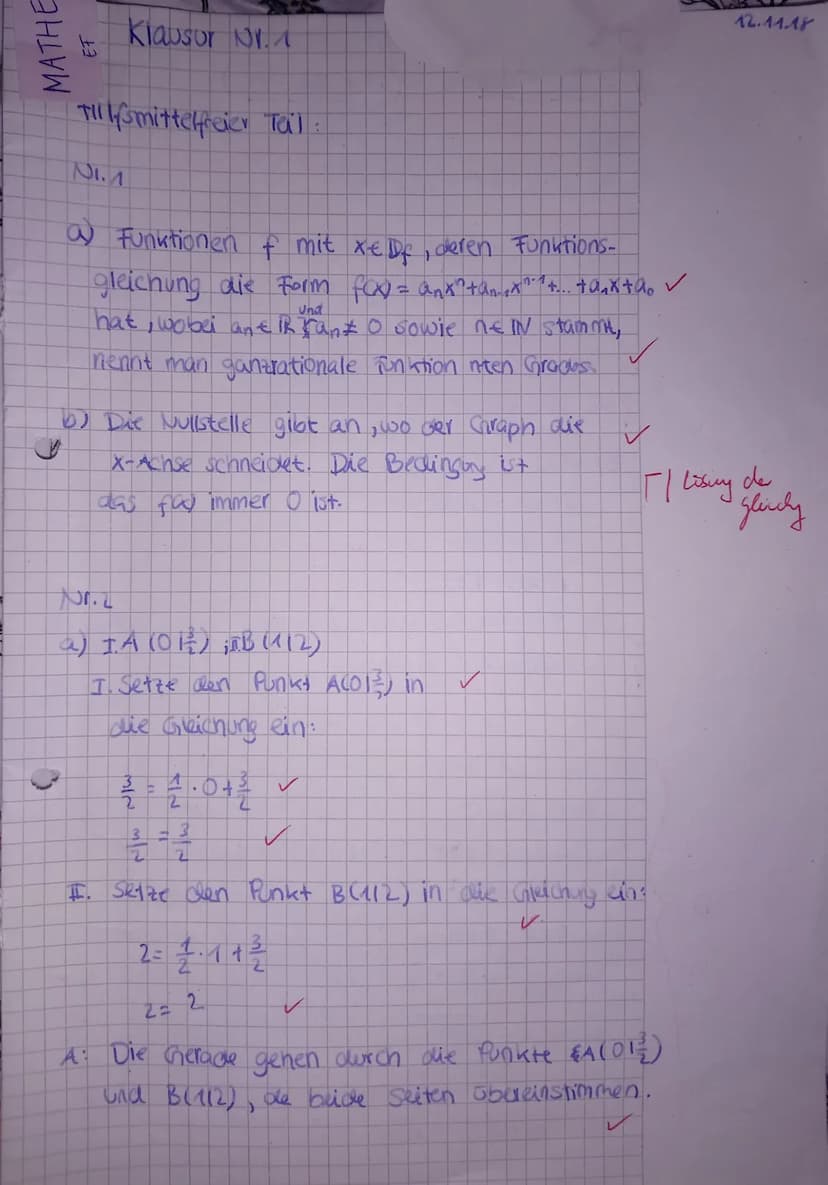 MATHE
ET
Klausur Nr. 1
12.11.18
Hilfsmittelfreier Teil:
Nr. 1
a) Funktionen f mit x ∈ Df, deren Funktions-
gleichung die Form f(x) = aₙxⁿ + aₙ₋₁xⁿ⁻¹ + ... + a₁x + a₀ ✓
hat, wobei aₙ ∈ ℝ und aₙ ≠ 0 sowie n ∈ ℕ stammt,
nennt man ganzrationale Funktion nten Grades. ✓
b) Die Nullstelle gibt an, wo der Graph die ✓
x-Achse schneidet. Die Bedingung ist
das f(x) immer 0 ist.
Γ | Lösung der
Gleichg
Nr. 2
a) I. A (0|3/2) ; II. B (1|2)
I. Setze den Punkt A(0|3/2) in ✓
die Gleichung ein:
3/2 = 1/2 · 0 + 3/2 ✓
3/2 = 3/2 ✓
II. Setze den Punkt B(1|2) in die Gleichung ein: ✓
2 = 1/2 · 1 + 3/2
2 = 2 ✓
A: Die Gerade gehen durch die Punkte A(0|3/2)
und B(1|2), da beide Seiten übereinstimmen. ✓